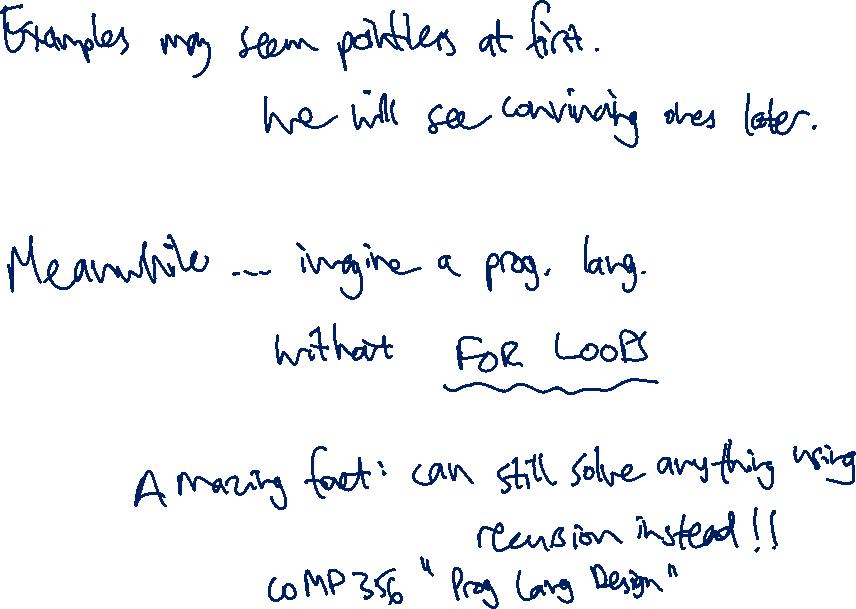 Examples may seem pointless at first.
We will see convincing ones later.
Meanwhile ... imagine a prog. lang.
without FOR LOOPS
Amazing fact: can still solve anything using
recursion instead!!
COMP356 "Prog Lang Design"